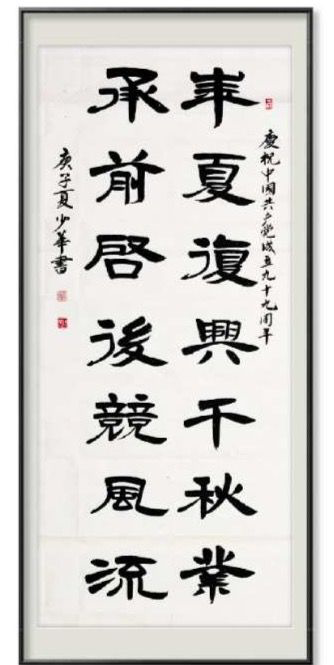 慶祝中国共产党成立九十九周年
華夏復興千秋業
承前啓後競風流
庚子夏少華書